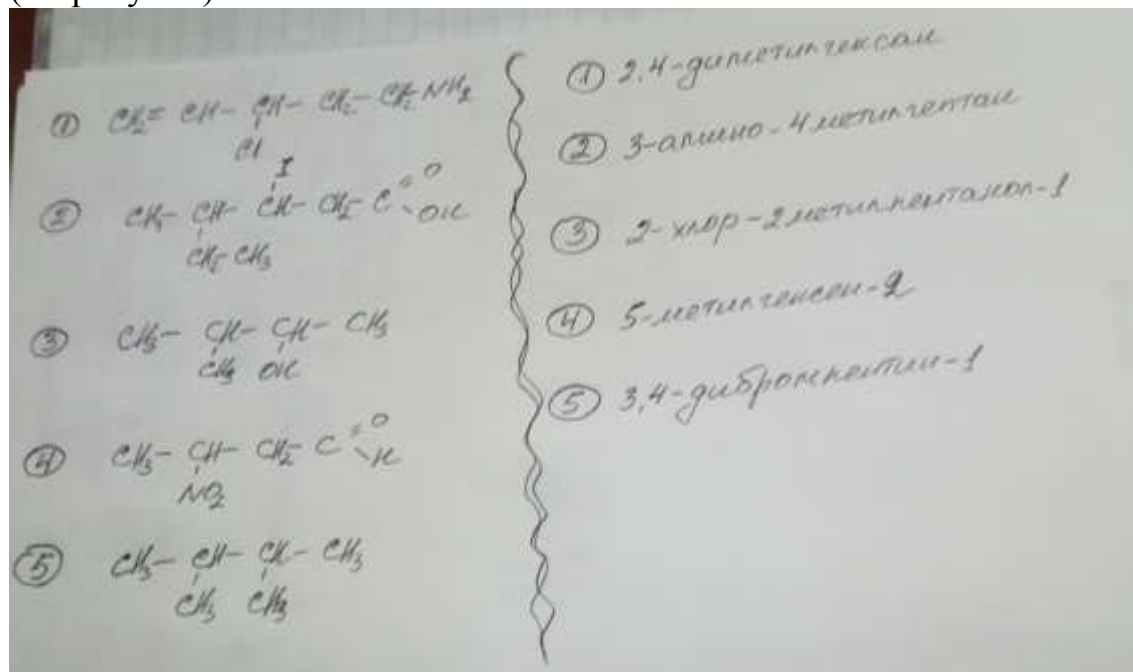 ① CH₂= CH- CH- CH₂- CH₂-NH₂
Cl
I
② CH₃- CH- CH- CH₂- C =O
-OH
CH₂- CH₃
③ CH₃- CH- CH- CH₃
CH₃ OH
④ CH₃- CH- CH₂- C =O
-H
NO₂
⑤ CH₃- CH- CH- CH₃
CH₃ CH₃
① 2,4-диметилгексан
② 3-амино-4метилгептан
③ 2-хлор-2метилпентанол-1
④ 5-метилгексен-2
⑤ 3,4-дибромпентин-1